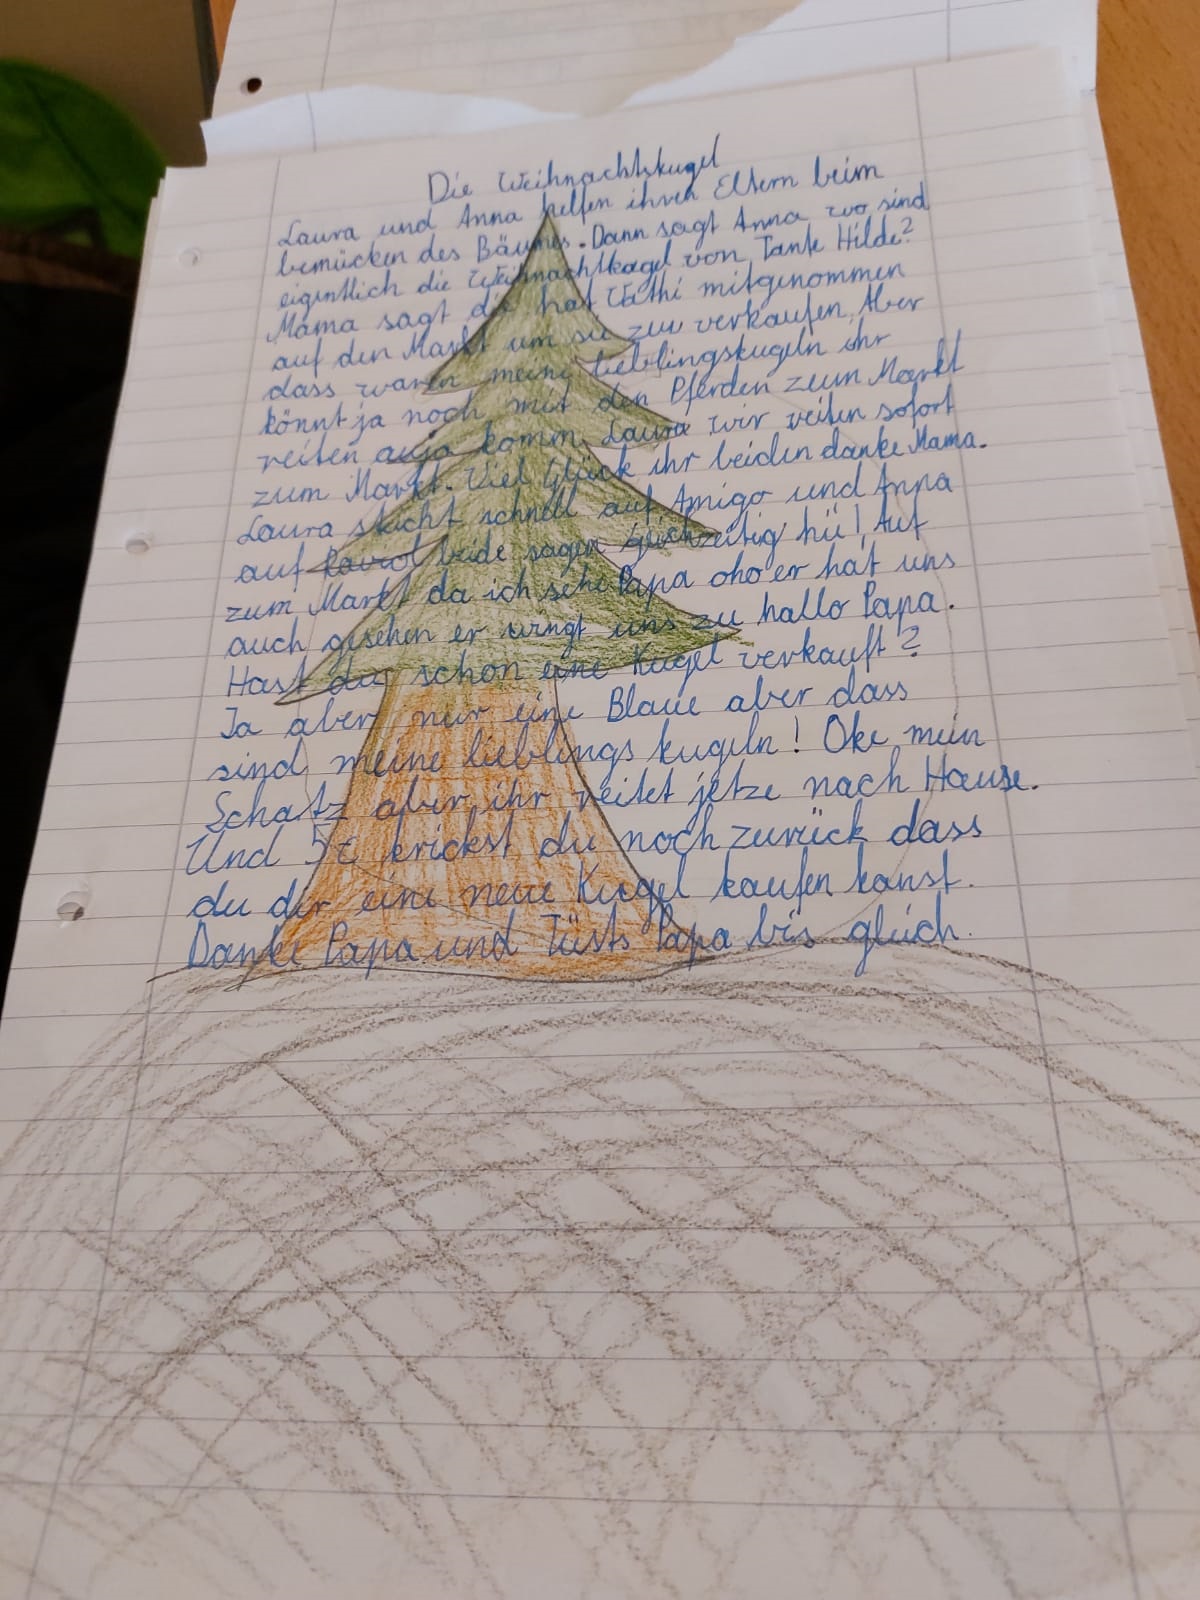 Die Weihnachtskugel
Laura und Anna helfen ihren Eltern beim
bemücken des Bäumes. Dann sagt Anna wo sind
eigentlich die Weihnachtkagel von Tante Hilde?
Mama sagt die hat Vathi mitgenommen
auf den Markt um sie zur verkaufen. Aber
dass waren meine lieblingskugeln ihr
könnt ja noch mit den Pferden zum Markt
reiten auja komm Laura wir reiten sofort
zum Markt. Viel Glück ihr beiden danke Mama.
Laura stucht schnell auf Amigo und Anna
auf beide sagen gleichzeitig hü! Auf
zum Markt da ich sehe Papa oho er hat uns
auch gesehen er wingt uns zu hallo Papa.
Hast du schon eine Kugel verkauft?
Ja aber nur eine Blaue aber dass
sind meine lieblings kugeln! Oke mein
Schatz aber ihr reitet jetze nach Hause.
Und 5€ krickst du noch zurück dass
du dir eine neue Kugel kaufen kanst.
Danke Papa und Tüsts Papa bis gleich.